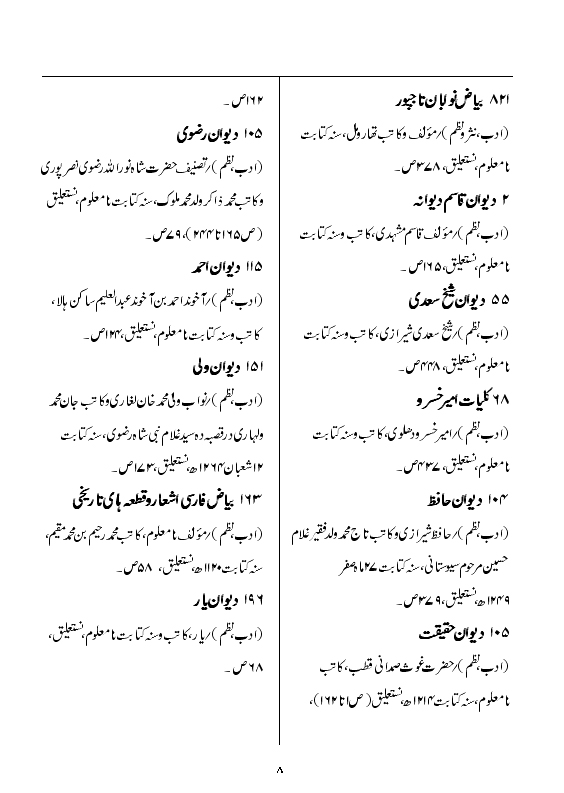 ۸۲۱ بیاض نوابان تاجپور
(ادب، نثر و نظم)/مؤلف و کاتب تھارومل، سنہ کتابت
نامعلوم، نستعلیق، ۳۷۸ص۔
۲ دیوان قاسم دیوانہ
(ادب، نظم)/مؤلف قاسم مشہدی، کاتب وسنہ کتابت
نامعلوم، نستعلیق، ۱۶۵ص۔
۵۵ دیوان شیخ سعدی
(ادب، نظم)/شیخ سعدی شیرازی، کاتب وسنہ کتابت
نامعلوم، نستعلیق، ۴۴۸ص۔
۶۸ کلیات امیر خسرو
(ادب، نظم)/امیر خسرو دہلوی، کاتب وسنہ کتابت
نامعلوم، نستعلیق، ۴۳۷ص۔
۱۰۴ دیوان حافظ
(ادب، نظم)/حافظ شیرازی و کاتب تاج محمد ولد فقیر غلام
حسین مرحوم سیوستانی، سنہ کتابت ۲۷ ماہ صفر
۱۲۴۹ھ، نستعلیق، ۳۷۹ص۔
۱۰۵ دیوان حقیقت
(ادب، نظم)/حضرت غوث صمدانی قطب، کاتب
نامعلوم، سنہ کتابت ۱۲۱۴ھ، نستعلیق (ص۱ تا ۱۶۲)،
۱۶۲ص۔
۱۰۵ دیوان رضوی
(ادب، نظم)/تصنیف حضرت شاہ نور اللہ رضوی نصرپوری
و کاتب محمد ذاکر ولد محمد ملوک، سنہ کتابت نامعلوم، نستعلیق
(ص۱۶۵ تا ۲۴۴)، ۷۹ص۔
۱۱۵ دیوان احمد
(ادب، نظم)/آخوند احمد بن آخوند عبدالعلیم ساکن ہالا،
کاتب وسنہ کتابت نامعلوم، نستعلیق، ۱۲۴ص۔
۱۵۱ دیوان ولی
(ادب، نظم)/نواب ولی محمد خان لغاری و کاتب جان محمد
ولہاری در قصبہ دہ سید غلام نبی شاہ رضوی، سنہ کتابت
۱۲شعبان ۱۲۶۴ھ، نستعلیق، ۱۷۳ص۔
۱۶۳ بیاض فارسی اشعار و قطعہ ہای تاریخی
(ادب، نظم)/مؤلف نامعلوم، کاتب محمد رحیم بن محمد مقیم،
سنہ کتابت ۱۱۲۰ھ، نستعلیق، ۵۸ص۔
۱۹۶ دیوان یار
(ادب، نظم)/یار، کاتب وسنہ کتابت نامعلوم، نستعلیق،
۶۸ص۔
۸